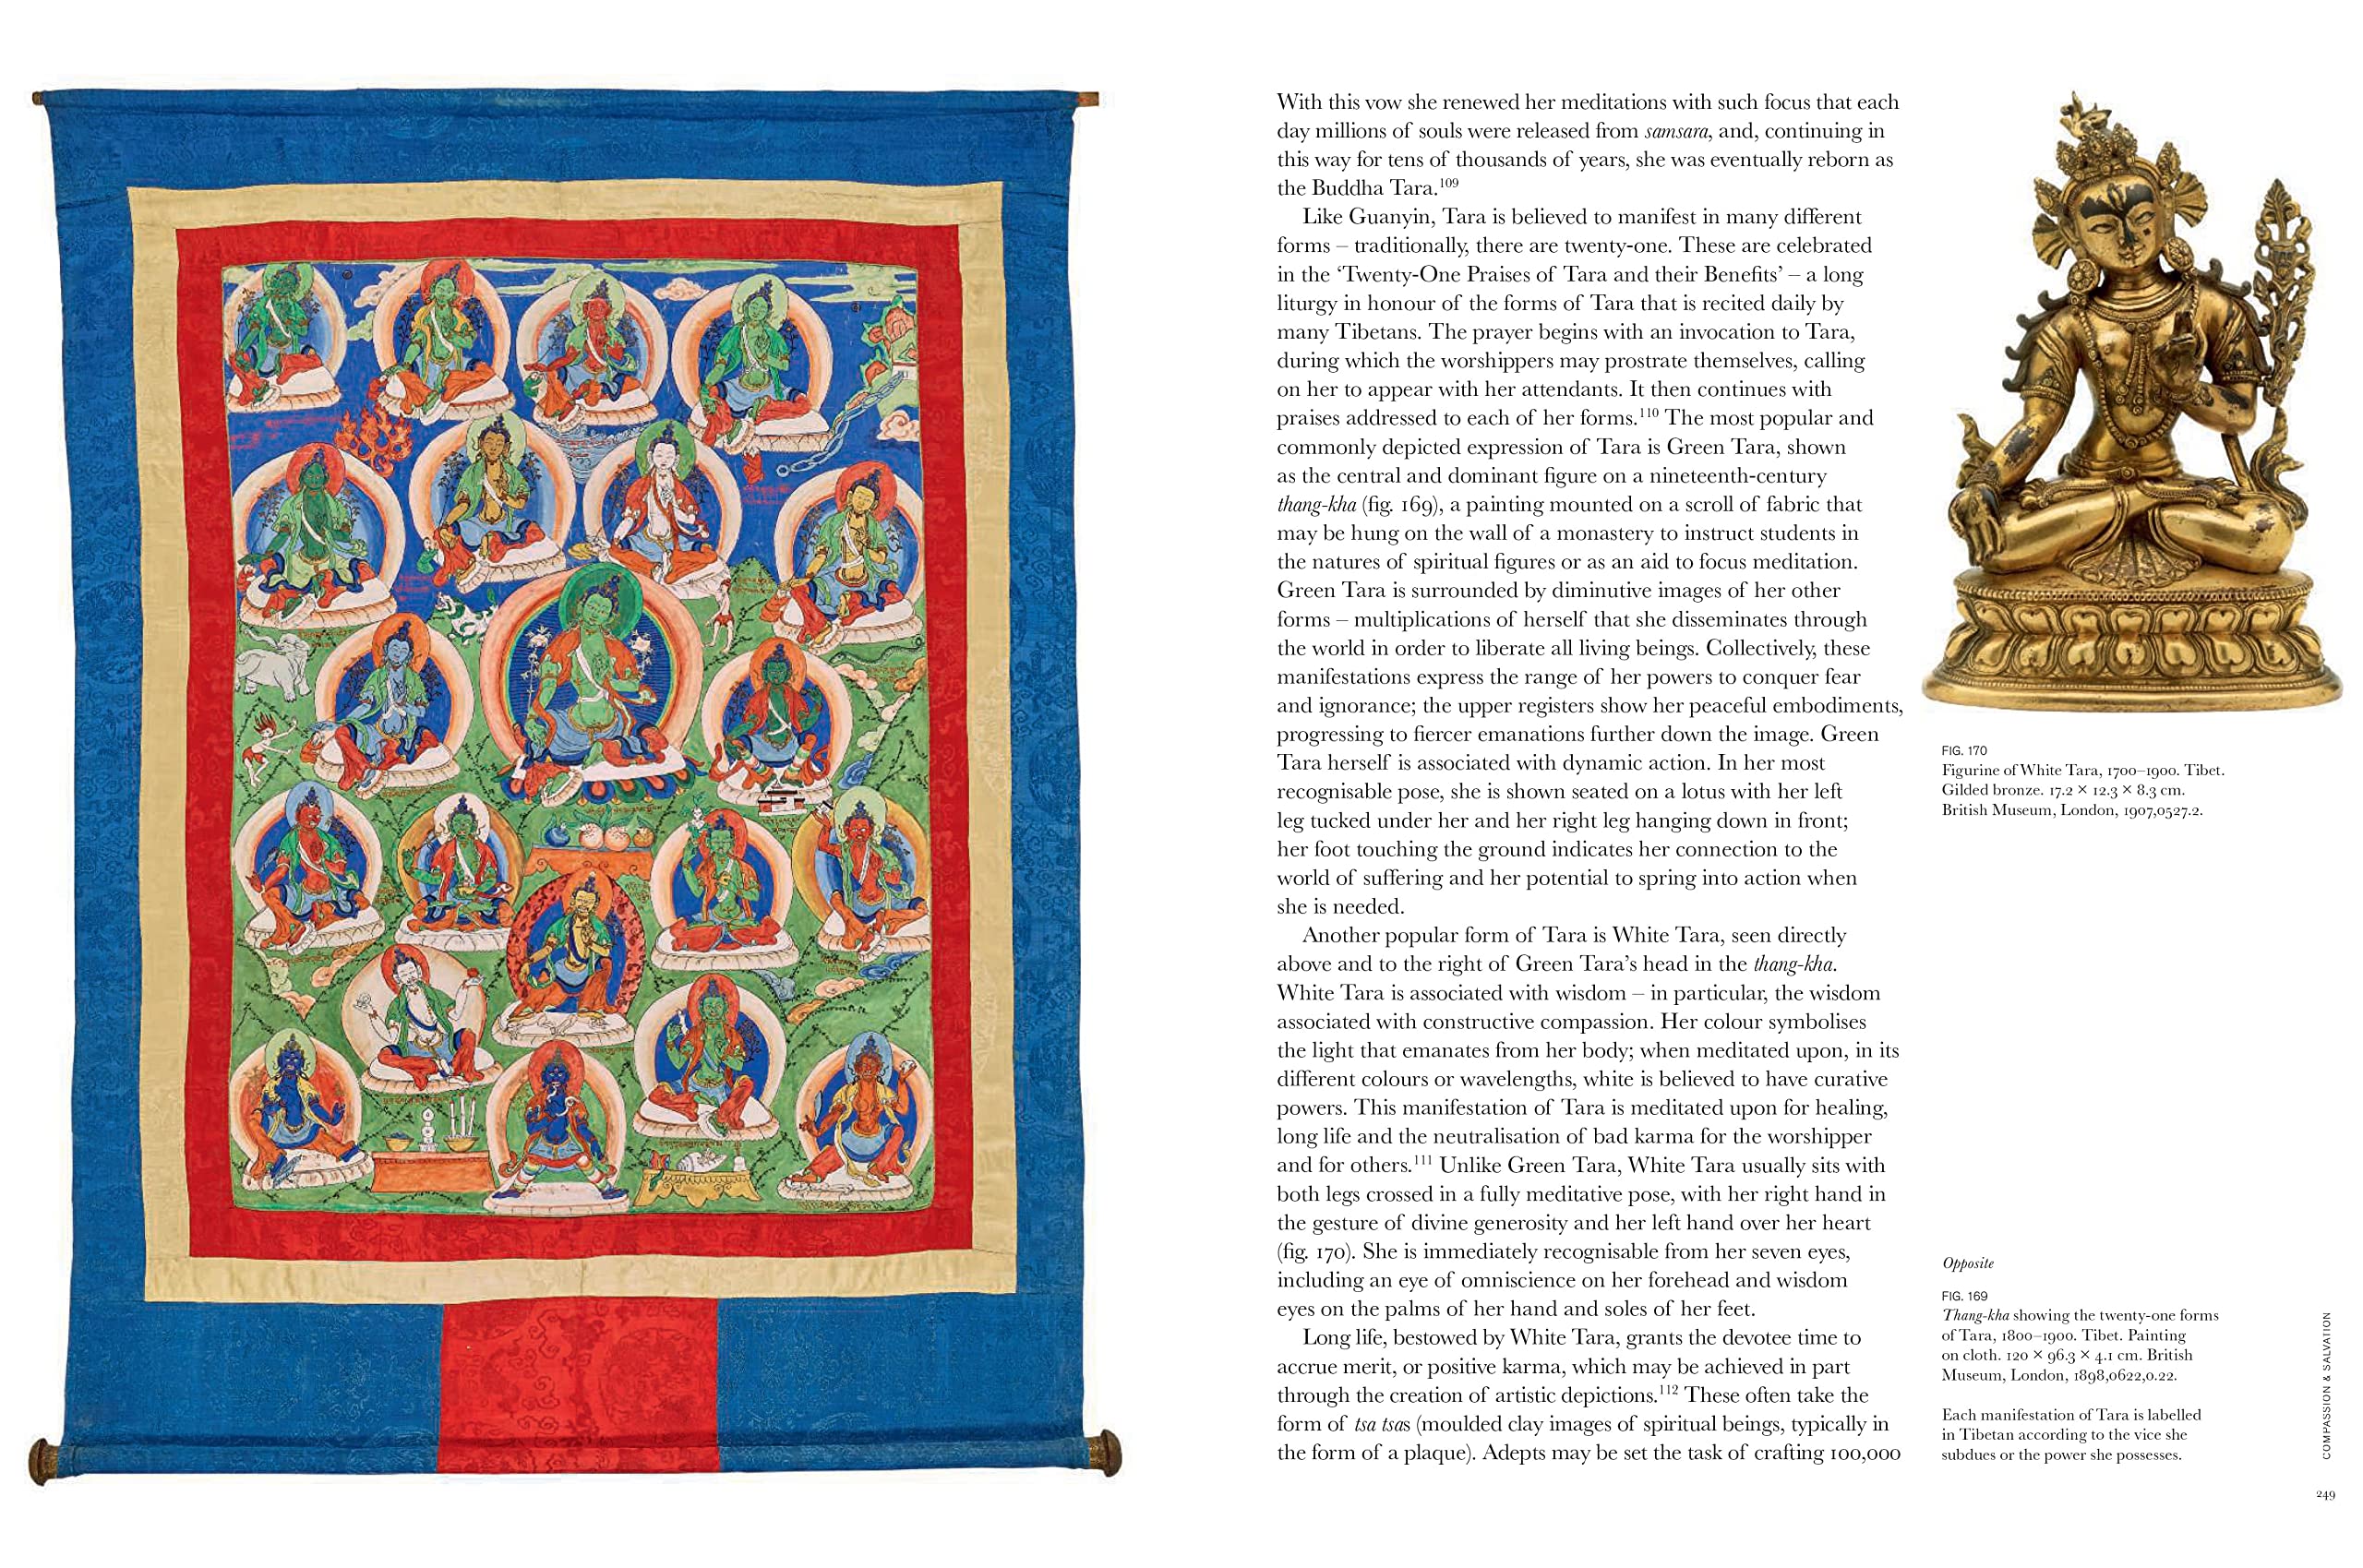 With this vow she renewed her meditations with such focus that each
day millions of souls were released from samsara, and, continuing in
this way for tens of thousands of years, she was eventually reborn as
the Buddha Tara.109
Like Guanyin, Tara is believed to manifest in many different
forms – traditionally, there are twenty-one. These are celebrated
in the ‘Twenty-One Praises of Tara and their Benefits’ – a long
liturgy in honour of the forms of Tara that is recited daily by
many Tibetans. The prayer begins with an invocation to Tara,
during which the worshippers may prostrate themselves, calling
on her to appear with her attendants. It then continues with
praises addressed to each of her forms.110 The most popular and
commonly depicted expression of Tara is Green Tara, shown
as the central and dominant figure on a nineteenth-century
thang-kha (fig. 169), a painting mounted on a scroll of fabric that
may be hung on the wall of a monastery to instruct students in
the natures of spiritual figures or as an aid to focus meditation.
Green Tara is surrounded by diminutive images of her other
forms – multiplications of herself that she disseminates through
the world in order to liberate all living beings. Collectively, these
manifestations express the range of her powers to conquer fear
and ignorance; the upper registers show her peaceful embodiments,
progressing to fiercer emanations further down the image. Green
Tara herself is associated with dynamic action. In her most
recognisable pose, she is shown seated on a lotus with her left
leg tucked under her and her right leg hanging down in front;
her foot touching the ground indicates her connection to the
world of suffering and her potential to spring into action when
she is needed.
Another popular form of Tara is White Tara, seen directly
above and to the right of Green Tara’s head in the thang-kha.
White Tara is associated with wisdom – in particular, the wisdom
associated with constructive compassion. Her colour symbolises
the light that emanates from her body; when meditated upon, in its
different colours or wavelengths, white is believed to have curative
powers. This manifestation of Tara is meditated upon for healing,
long life and the neutralisation of bad karma for the worshipper
and for others.111 Unlike Green Tara, White Tara usually sits with
both legs crossed in a fully meditative pose, with her right hand in
the gesture of divine generosity and her left hand over her heart
(fig. 170). She is immediately recognisable from her seven eyes,
including an eye of omniscience on her forehead and wisdom
eyes on the palms of her hand and soles of her feet.
Long life, bestowed by White Tara, grants the devotee time to
accrue merit, or positive karma, which may be achieved in part
through the creation of artistic depictions.112 These often take the
form of tsa tsas (moulded clay images of spiritual beings, typically in
the form of a plaque). Adepts may be set the task of crafting 100,000
FIG. 170
Figurine of White Tara, 1700–1900. Tibet.
Gilded bronze. 17.2 × 12.3 × 8.3 cm.
British Museum, London, 1907,0527.2.
Opposite
FIG. 169
Thang-kha showing the twenty-one forms
of Tara, 1800–1900. Tibet. Painting
on cloth. 120 × 96.3 × 4.1 cm. British
Museum, London, 1898,0622,0.22.
Each manifestation of Tara is labelled
in Tibetan according to the vice she
subdues or the power she possesses.
COMPASSION & SALVATION
249